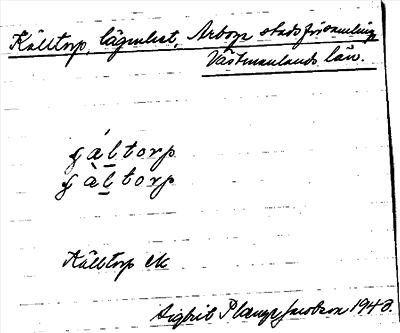 Källtorp, lägenhet, Arboga stadsförsamling
Västmanlands län.
gáltorp
gàltorp
Källtorp ek
Sigrid Plange Jacobson 1940.